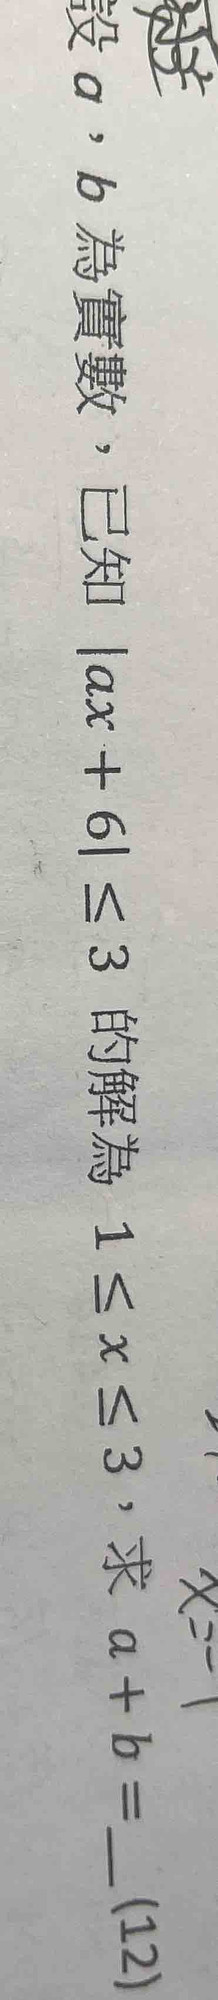 設 a，b 為實數，已知 |ax + 6| ≤ 3 的解為 1 ≤ x ≤ 3，求 a + b = __(12)
x=-1